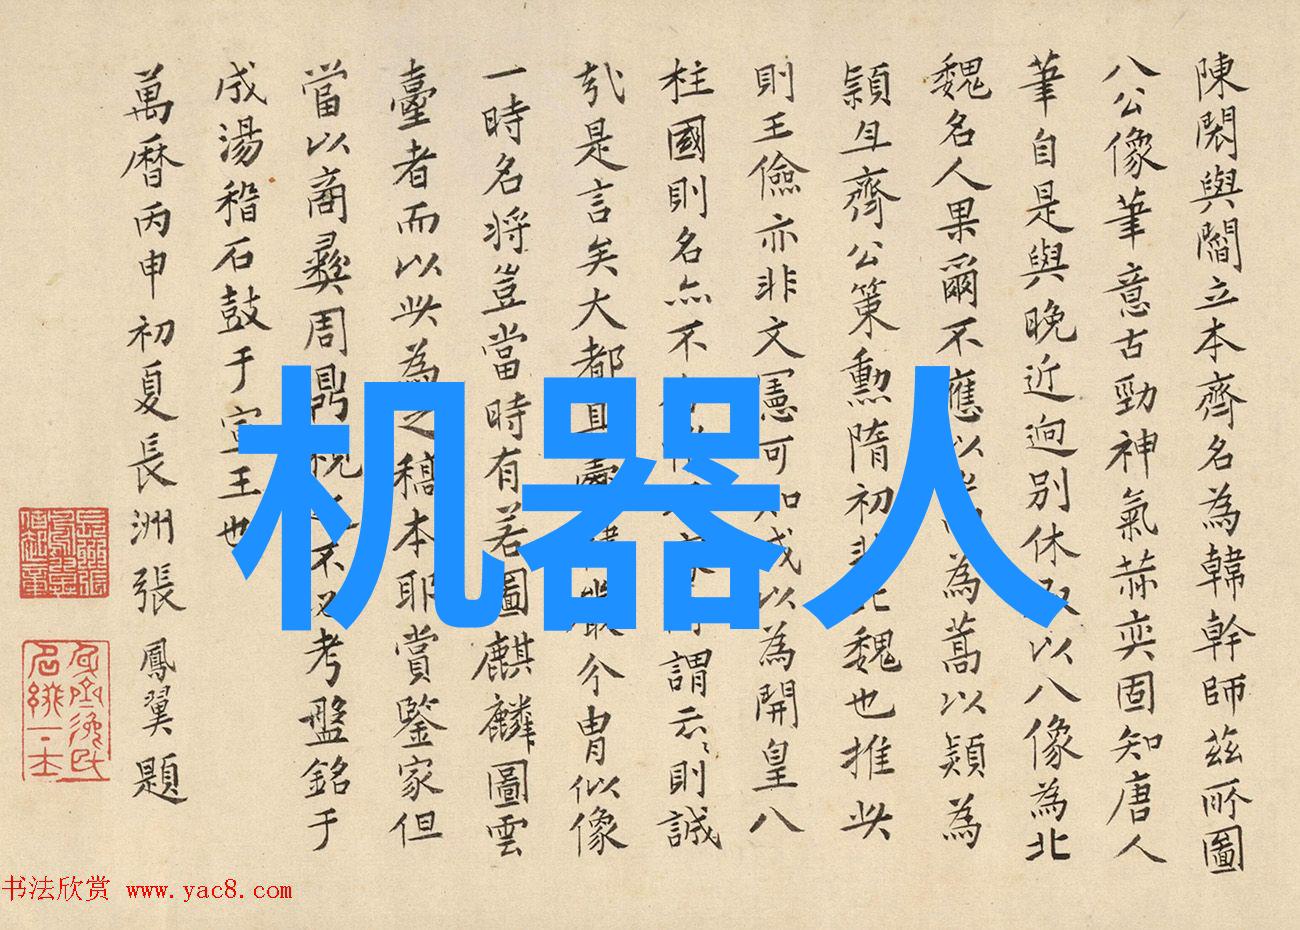 陳閎與閻立本齊名為韓幹師茲所圖
八公像筆意古勁神氣赫奕固知唐人
筆自是與晚近逈別休承以八像為北
魏名人果爾不應以為蒿以熲為
熲且齊公策勳隋初非北魏也推此
則王儉亦非文憲可知或以為開皇八
柱國則名亦不謂云云則誠
㢤是言矣大都且介冑似像
一時名將豈當時有若圖麒麟圖雲
臺者而以此為之稿本耶賞鑒家但
當以商彝周鼎視不必考盤銘于
成湯稽石鼓于宣王也
萬曆丙申初夏長洲張鳳翼題
机器人
书法欣赏 www.yac8.com